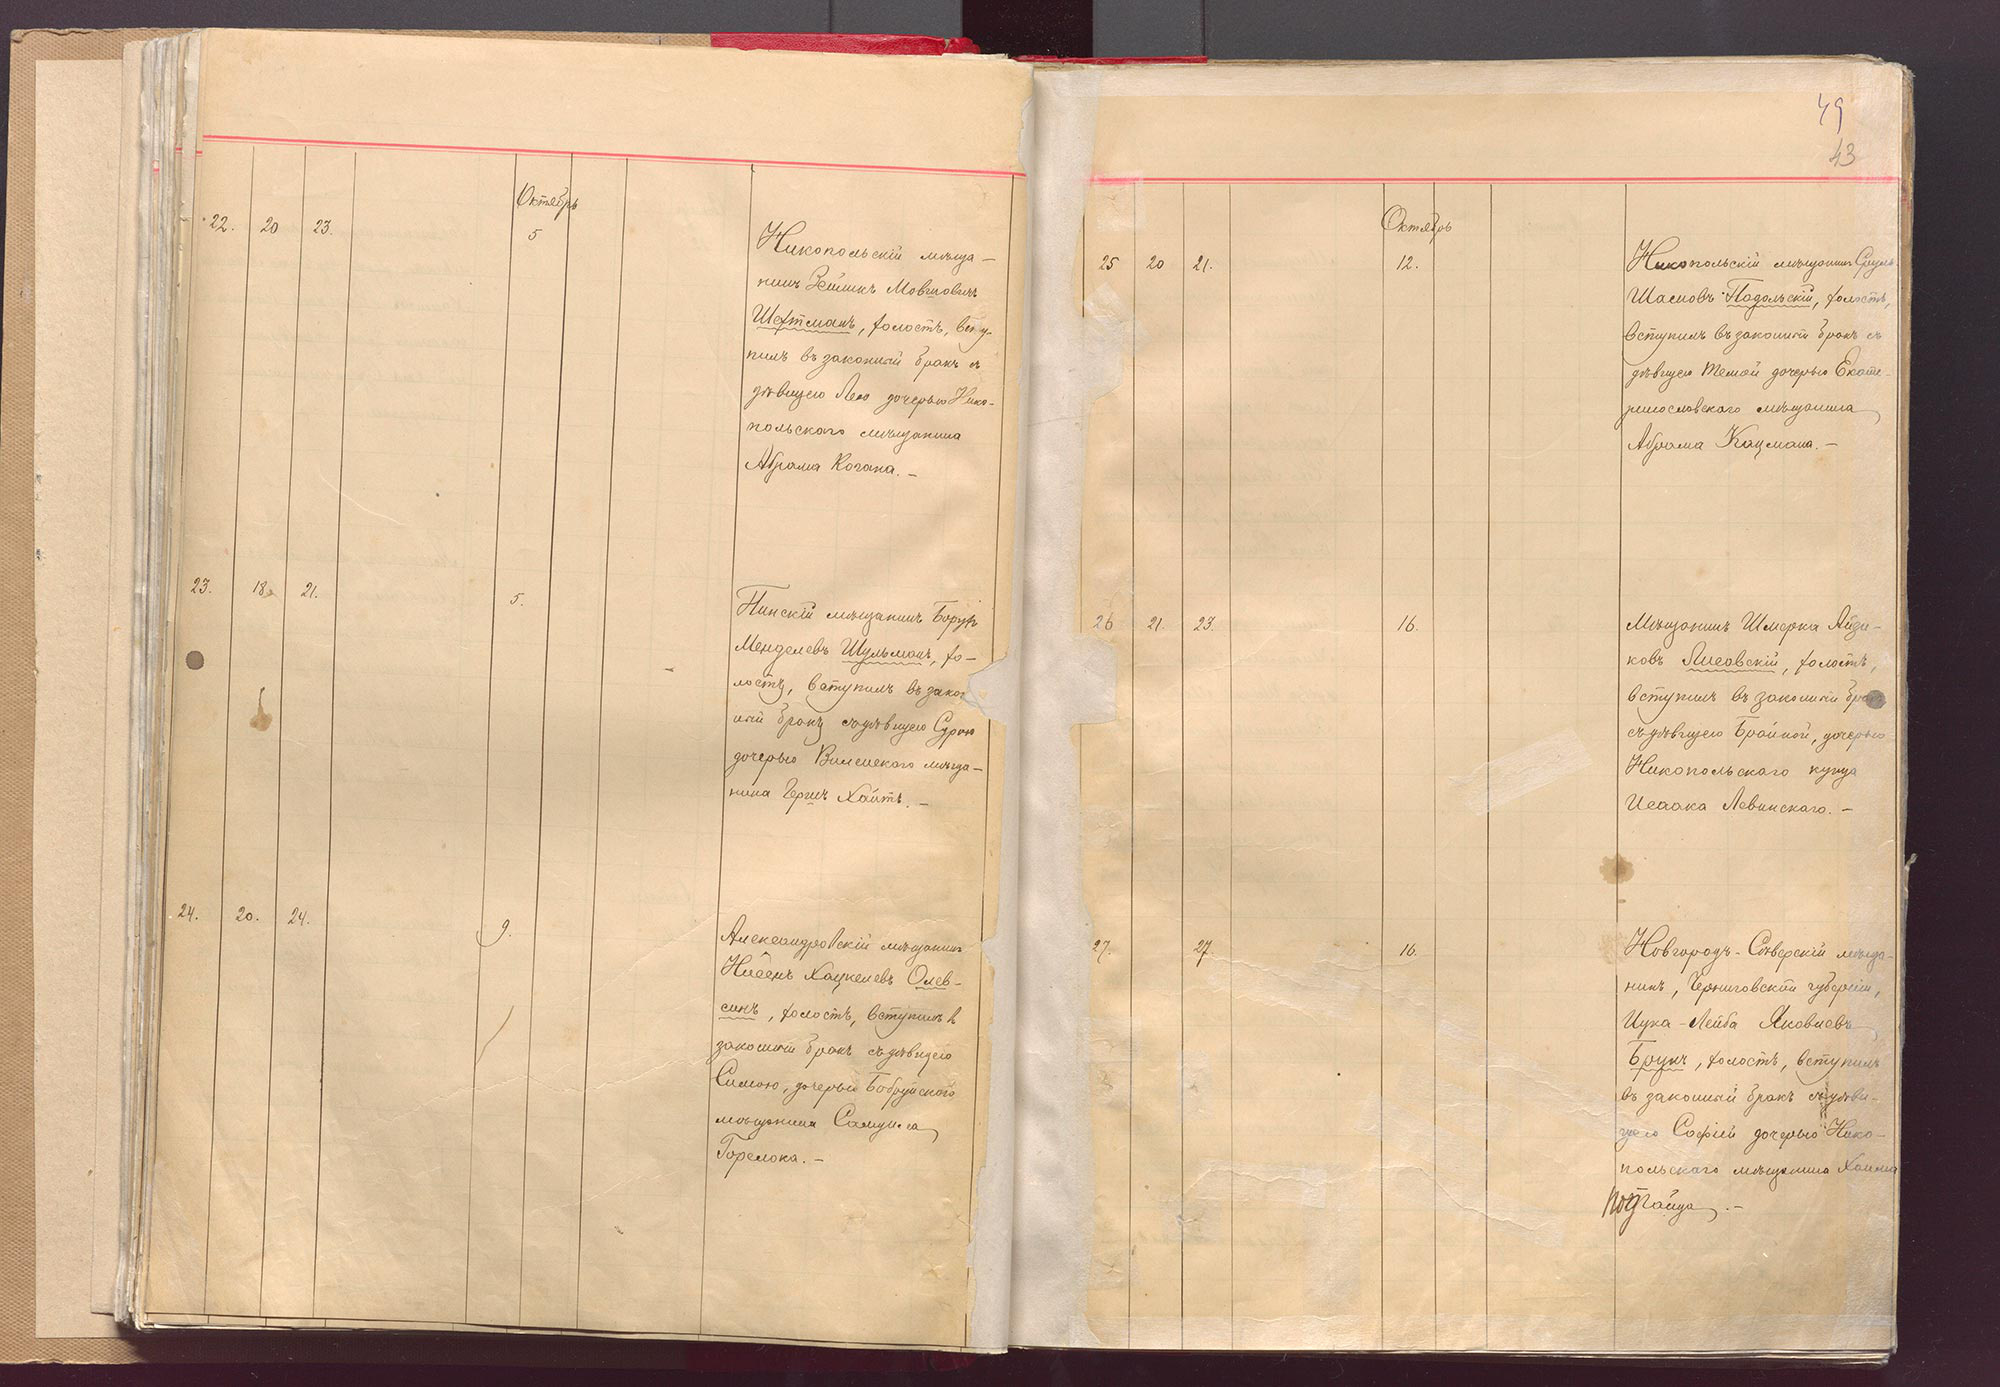 Октябрь
22. 20 23. 5
Никопольскій мѣща-
нинъ Зеликъ Мовшовичъ
Шефтманъ, холостъ, всту-
пилъ въ законный бракъ съ
дѣвицею Леею дочерью Нико-
польского мѣщанина
Абрама Когана. —
23. 18. 21. 5.
Пинскій мѣщанинъ Борухъ
Менделевъ Шульманъ, хо-
лостъ, вступилъ въ закон
ный бракъ съ дѣвицею Сурою
дочерью Виленского мѣща-
нина Герша Хаитъ. —
24. 20. 24. 9.
Александровскій мѣщанинъ
Нисенъ Хацкелевъ Олев-
синъ, холостъ, вступилъ в
законный бракъ съ дѣвицею
Симою, дочерью Бобруйского
мѣщанина Самуила
Горелока. —
49
43
Октябрь
25 20 21. 12.
Никопольскій мѣщанинъ Сруль
Шаевъ Подольскій, холостъ,
вступилъ въ законный бракъ съ
дѣвицею Темой дочерью Екате-
ринославского мѣщанина
Абрама Кацмана. —
26 21. 23. 16.
Мѣщанинъ Шмерка Айзи-
ковъ Лисовскій, холостъ,
вступилъ въ законный бракъ
съ дѣвицею Брайной, дочерью
Никопольскаго купца
Исаака Левинскаго. —
27. 27 16.
Новгородъ-Сѣверскій мѣща-
нинъ, Черниговской губерніи,
Ицка-Лейба Яковлевъ
Брукъ, холостъ, вступилъ
въ законный бракъ съ дѣви-
цею Софіей дочерью Нико-
польскаго мѣщанина Хаима
Потгайца. —